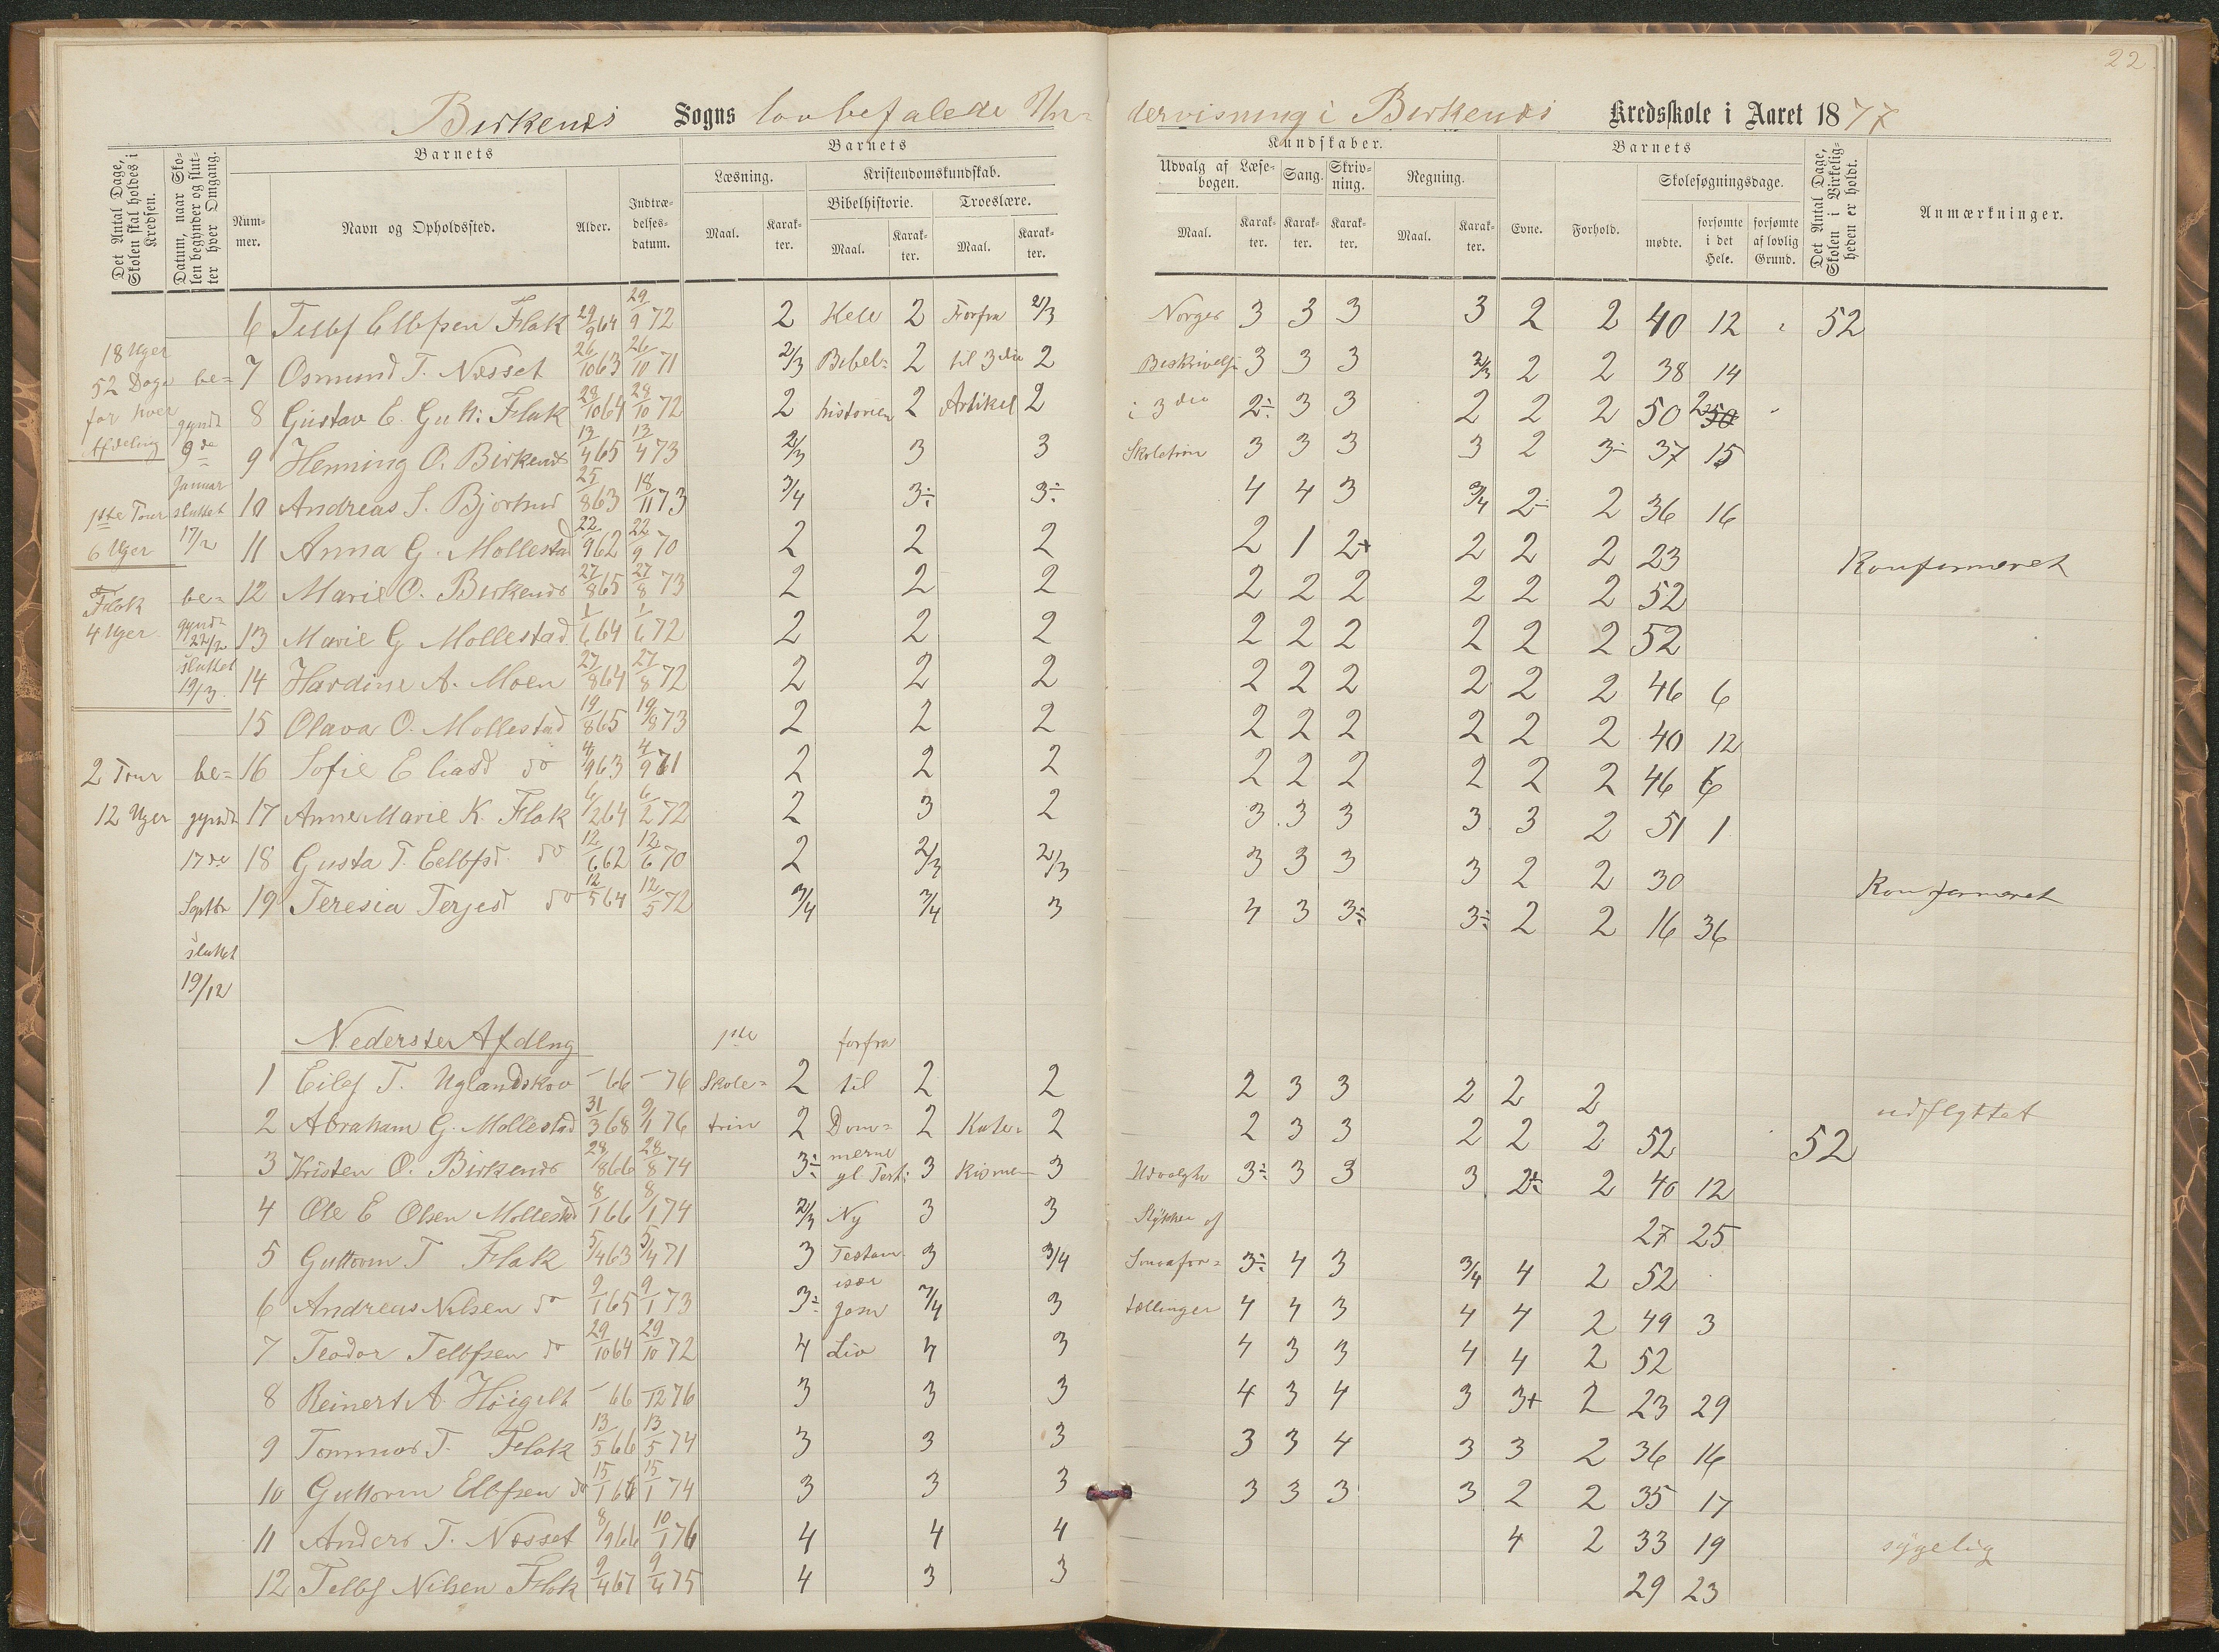 22
Birkenes Sogns lovbefalede Un- dervisning i Birkenes Kredsskole i Aaret 1877
Det Antal Dage, Skolen skal holdes i Kredsen.
Datum, naar Skolen begynder og slutter hver Omgang.
Barnets
Nummer.
Navn og Opholdssted.
Alder.
Indtrædelses-datum.
Barnets
Læsning.
Maal.
Karakter.
Kristendomskundskab.
Bibelhistorie.
Maal.
Karakter.
Troeslære.
Maal.
Karakter.
Kundskaber.
Udvalg af Læsebogen.
Maal.
Karakter.
Sang.
Karakter.
Skrivning.
Karakter.
Regning.
Maal.
Karakter.
Barnets
Evne.
Forhold.
Skolesøgningsdage.
mødte.
forsømte i det Hele.
forsømte af lovlig Grund.
Det Antal Dage, Skolen i Virkeligheden er holdt.
Anmærkninger.
6 Tellef Ellefsen Flak 29/9 64 29/9 72 2 Hele 2 Forfra 2/3 Norges 3 3 3 3 2 2 40 12 52
18 Uger
52 Dage be= 7 Osmund T. Næsset 26/10 63 26/10 71 2/3 Bibel= 2 til 3die 2 Beskrivelse 3 3 3 2/3 2 2 38 14
for hver gyndt 8 Gustav E. Gutt: Flak 28/10 64 28/10 72 2 historien 2 Artikel 2 i 3die 2÷ 3 3 2 2 2 50 2
Afdeling 9de 9 Henning O. Birkenes 13/4 65 13/4 73 2/3 3 3 Skoletrin 3 3 3 3 2 3- 37 15
Januar
1ste Tour sluttet 10 Andreas S. Bjorhus 25/8 63 18/11 73 3/4 3÷ 3÷ 4 4 3 3/4 2- 2 36 16
6 Uger 17/2 11 Anna G. Mollestad 22/9 62 22/9 70 2 2 2 2 1 2+ 2 2 2 23 Konfirmeret
Flak be= 12 Marie O. Birkenes 27/8 65 27/8 73 2 2 2 2 2 2 2 2 2 52
4 Uger gyndt 22/2 13 Marie G Mollestad 1/6 64 1/6 72 2 2 2 2 2 2 2 2 2 52
sluttet 19/3 14 Hardine A. Moen 27/8 64 27/8 72 2 2 2 2 2 2 2 2 2 46 6
15 Olava O. Mollestad 19/8 65 19/8 73 2 2 2 2 2 2 2 2 2 40 12
2 Tour be= 16 Sofie Eliasd do 4/9 63 4/9 71 2 2 2 2 2 2 2 2 2 46 6
12 Uger gyndt 17 Anne Marie K. Flak 6/2 64 6/2 72 2 3 2 3 3 3 3 3 2 51 1
17de 18 Gusta T. Eelbfsd. do 12/6 62 12/6 70 2 2/3 2/3 3 3 3 3 2 2 30 Konfirmeret
Septbr 19 Teresia Terjesd do 12/5 64 12/5 72 3/4 3/4 3 4 3 3÷ 3÷ 2 2 16 36
sluttet
19/12
Nederster Afdlng 1ste forfra
1 Eilef T. Uglandskov - 66 - 76 Skole= 2 til 2 2 2 3 3 2 2 2 udflyttet
2 Abraham G. Mollestad 31/3 68 9/1 76 trin 2 Dom= 2 Kate= 2 2 3 3 2 2 2 52 52
3 Kristen O. Birkenes 28/8 66 28/8 74 3÷ merne gl. Test: 3 kisme 3 Udvalgte 3÷ 3 3 3 2÷ 2 40 12
4 Ole E Olsen Mollestad 8/1 66 8/1 74 2/3 Ny 3 3 Stykker af 27 25
5 Guttorm T Flak 5/4 63 5/4 71 3 Testam. 3 3/4 Smaafor= 3÷ 4 3 3/4 4 2 52
6 Andreas Nilsen do 9/1 65 9/1 73 3÷ især Jesu 3/4 3 tællinger 4 4 3 4 4 2 49 3
7 Teodor Telbfsen do 29/10 64 29/10 72 4 Liv 4 3 4 3 3 4 4 2 52
8 Reinert A. Höigilt - 66 -12 76 3 3 3 4 3 4 3 3+ 2 23 29
9 Tommas T. Flak 13/5 66 13/5 74 3 3 3 3 3 4 3 3 2 36 16
10 Guttorm Elbfsen do 15/1 66 15/1 74 3 3 3 3 3 3 3 2 2 35 17
11 Anders T. Næsset 8/9 66 10/1 76 4 4 4 4 2 33 19 sygelig
12 Tellef Nilsen Flak 9/4 67 9/4 75 4 3 3 29 23